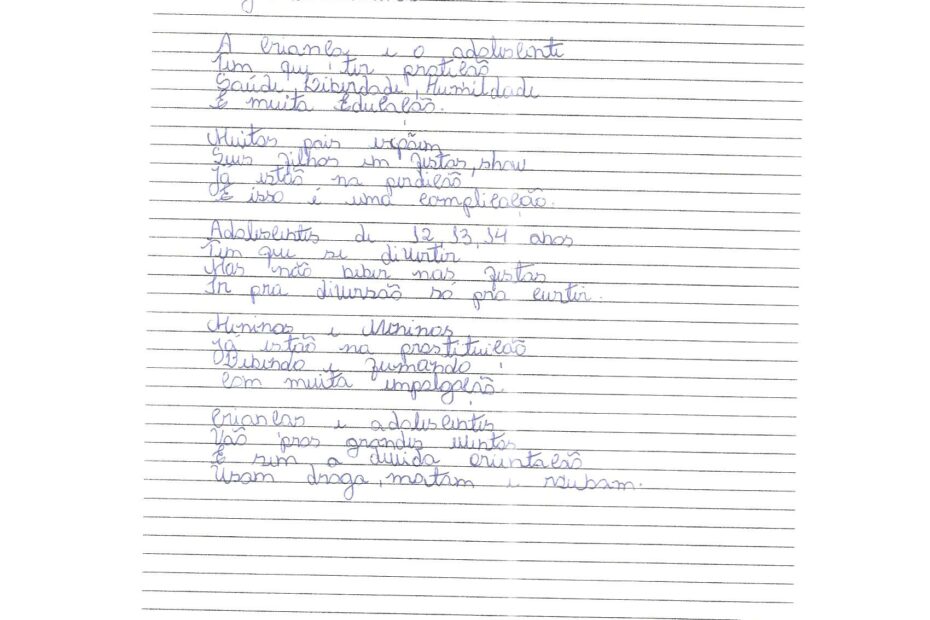 A criança e o adolescente
Tem que ter proteção
Saúde, Liberdade, Humildade
E muita Educação.
Muitos pais expõem
Seus filhos em festas, show
Já estão na perdição
E isso é uma complicação.
Adolescentes de 12, 13, 14 anos
Tem que se divertir
Mas não beber nas festas
Ir pra diversão só pra curtir.
Meninas e Meninos
Já estão na prostituição
Bebendo e fumando
Com muita empolgação.
Crianças e adolescentes
Vão pros grandes eventos
E sem a devida orientação
Usam droga, matam e roubam.